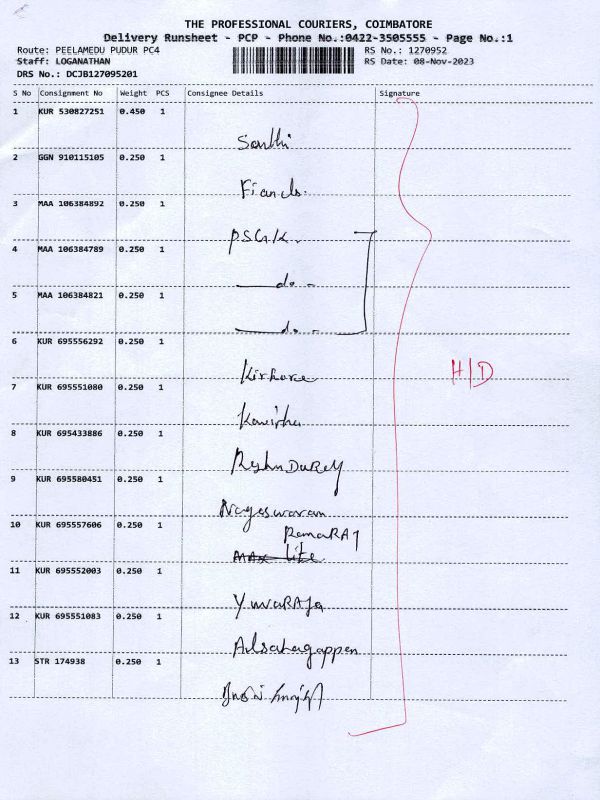 THE PROFESSIONAL COURIERS, COIMBATORE
Delivery Runsheet - PCP - Phone No.:0422-3505555 - Page No.:1
Route: PEELAMEDU PUDUR PC4 RS No.: 1270952
Staff: LOGANATHAN RS Date: 08-Nov-2023
DRS No.: DCJB127095201
S No Consignment No Weight PCS Consignee Details Signature
1 KUR 530827251 0.450 1
Santhi
2 GGN 910115105 0.250 1
3 MAA 106384892 0.250 1
4 MAA 106384789 0.250 1
do -
5 MAA 106384821 0.250 1
do -
6 KUR 695556292 0.250 1
H/D
7 KUR 695551080 0.250 1
8 KUR 695433886 0.250 1
9 KUR 695580451 0.250 1
Nageswaran
10 KUR 695557606 0.250 1
RamaRAJ
lite
11 KUR 695552003 0.250 1
YuvaRAJa
12 KUR 695551083 0.250 1
13 STR 174938 0.250 1